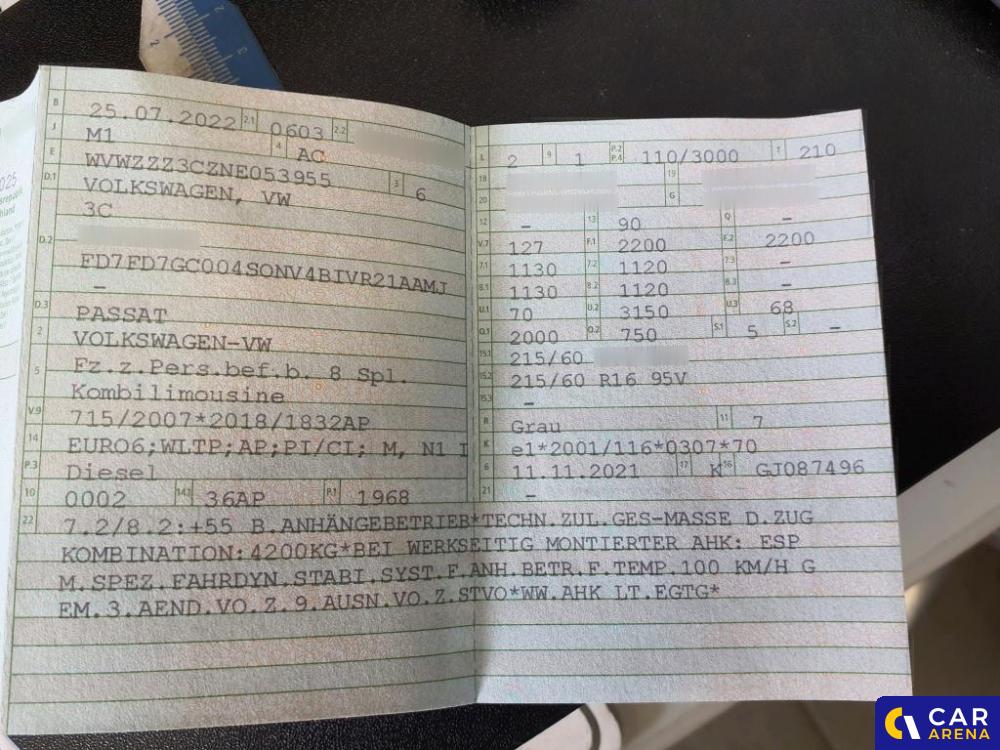 B 25.07.2022 2.1 0603 2.2
J M1 4 AC
E WVWZZZ3CZNE053955 3 6
D.1 VOLKSWAGEN, VW
3C
D.2
FD7FD7GC004SONV4BIVR21AAMJ
–
D.3 PASSAT
2 VOLKSWAGEN-VW
5 Fz.z.Pers.bef.b. 8 Spl.
Kombilimousine
V.9 715/2007*2018/1832AP
14 EURO6;WLTP;AP;PI/CI; M, N1 I
P.3 Diesel
10 0002 14.1 36AP P.1 1968
L 2 9 1 P.2 P.4 110/3000 T 210
18 19
20 G
12 – 13 90 Q –
V.7 127 F.1 2200 F.2 2200
7.1 1130 7.2 1120 7.3 –
8.1 1130 8.2 1120 8.3 –
U.1 70 U.2 3150 U.3 68
O.1 2000 O.2 750 S.1 5 S.2 –
15.1 215/60
15.2 215/60 R16 95V
15.3 –
R Grau 11 7
K e1*2001/116*0307*70
6 11.11.2021 17 K 16 GJ087496
21 –
22 7.2/8.2:+55 B.ANHÄNGEBETRIEB*TECHN.ZUL.GES-MASSE D.ZUG
KOMBINATION:4200KG*BEI WERKSEITIG MONTIERTER AHK: ESP
M.SPEZ.FAHRDYN.STABI.SYST.F.ANH.BETR.F.TEMP.100 KM/H G
EM.3.AEND.VO.Z.9.AUSN.VO.Z.STVO*WW.AHK LT.EGTG*
CAR
ARENA